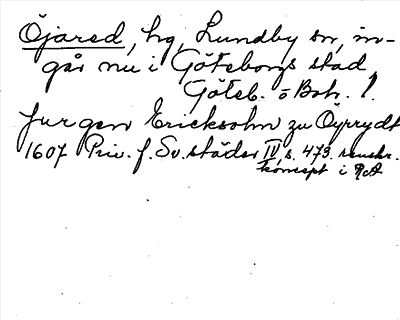 Öjared, hg, Lundby sn, in-
går nu i Göteborgs stad,
Göteb. o Boh. l.
Jurgen Ericksohn zu Öyrrydt
1607 Priv. f. Sv. städer IV, s. 473. renskr.
koncept i RA